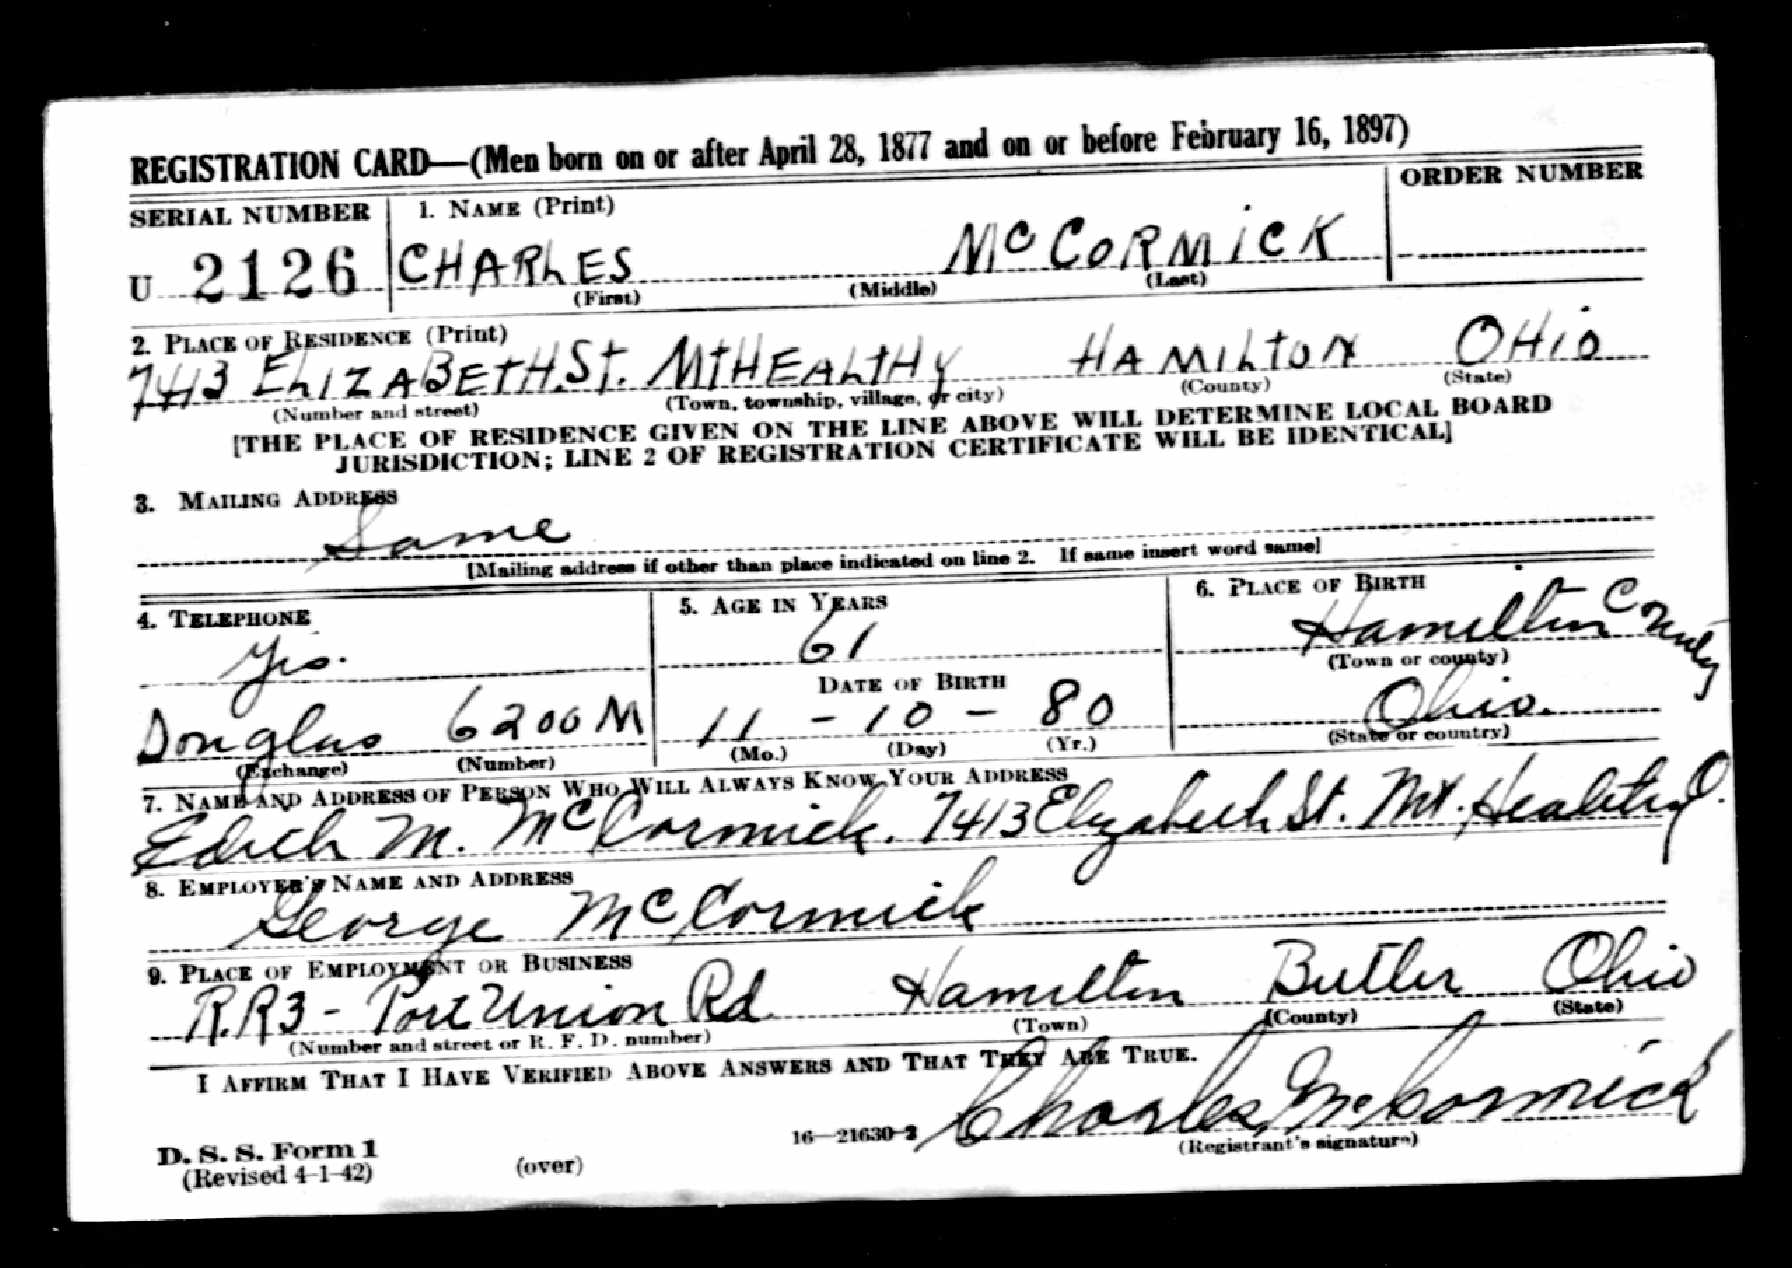 REGISTRATION CARD—(Men born on or after April 28, 1877 and on or before February 16, 1897)
SERIAL NUMBER 1. NAME (Print) ORDER NUMBER
U 2126 CHARLES McCORMICK
(First) (Middle) (Last)
2. PLACE OF RESIDENCE (Print)
7413 ELIZABETH.ST. MT HEALTHY HAMILTON OHIO
(Number and street) (Town, township, village, or city) (County) (State)
[THE PLACE OF RESIDENCE GIVEN ON THE LINE ABOVE WILL DETERMINE LOCAL BOARD
JURISDICTION; LINE 2 OF REGISTRATION CERTIFICATE WILL BE IDENTICAL]
3. MAILING ADDRESS
Same
[Mailing address if other than place indicated on line 2. If same insert word same]
4. TELEPHONE 5. AGE IN YEARS 6. PLACE OF BIRTH
Yes. 61 Hamilton County
(Town or county)
DATE OF BIRTH
Douglas 6200 M 11 - 10 - 80 Ohio.
(Exchange) (Number) (Mo.) (Day) (Yr.) (State or country)
7. NAME AND ADDRESS OF PERSON WHO WILL ALWAYS KNOW YOUR ADDRESS
Edith M. McCormick. 7413 Elizabeth St. Mt. Healthy O.
8. EMPLOYER'S NAME AND ADDRESS
George McCormick
9. PLACE OF EMPLOYMENT OR BUSINESS
R.R3 - Port Union Rd. Hamilton Butler Ohio
(Number and street or R. F. D. number) (Town) (County) (State)
I AFFIRM THAT I HAVE VERIFIED ABOVE ANSWERS AND THAT THEY ARE TRUE.
Charles McCormick
D. S. S. Form 1 16—21630-2 (Registrant's signature)
(Revised 4-1-42) (over)